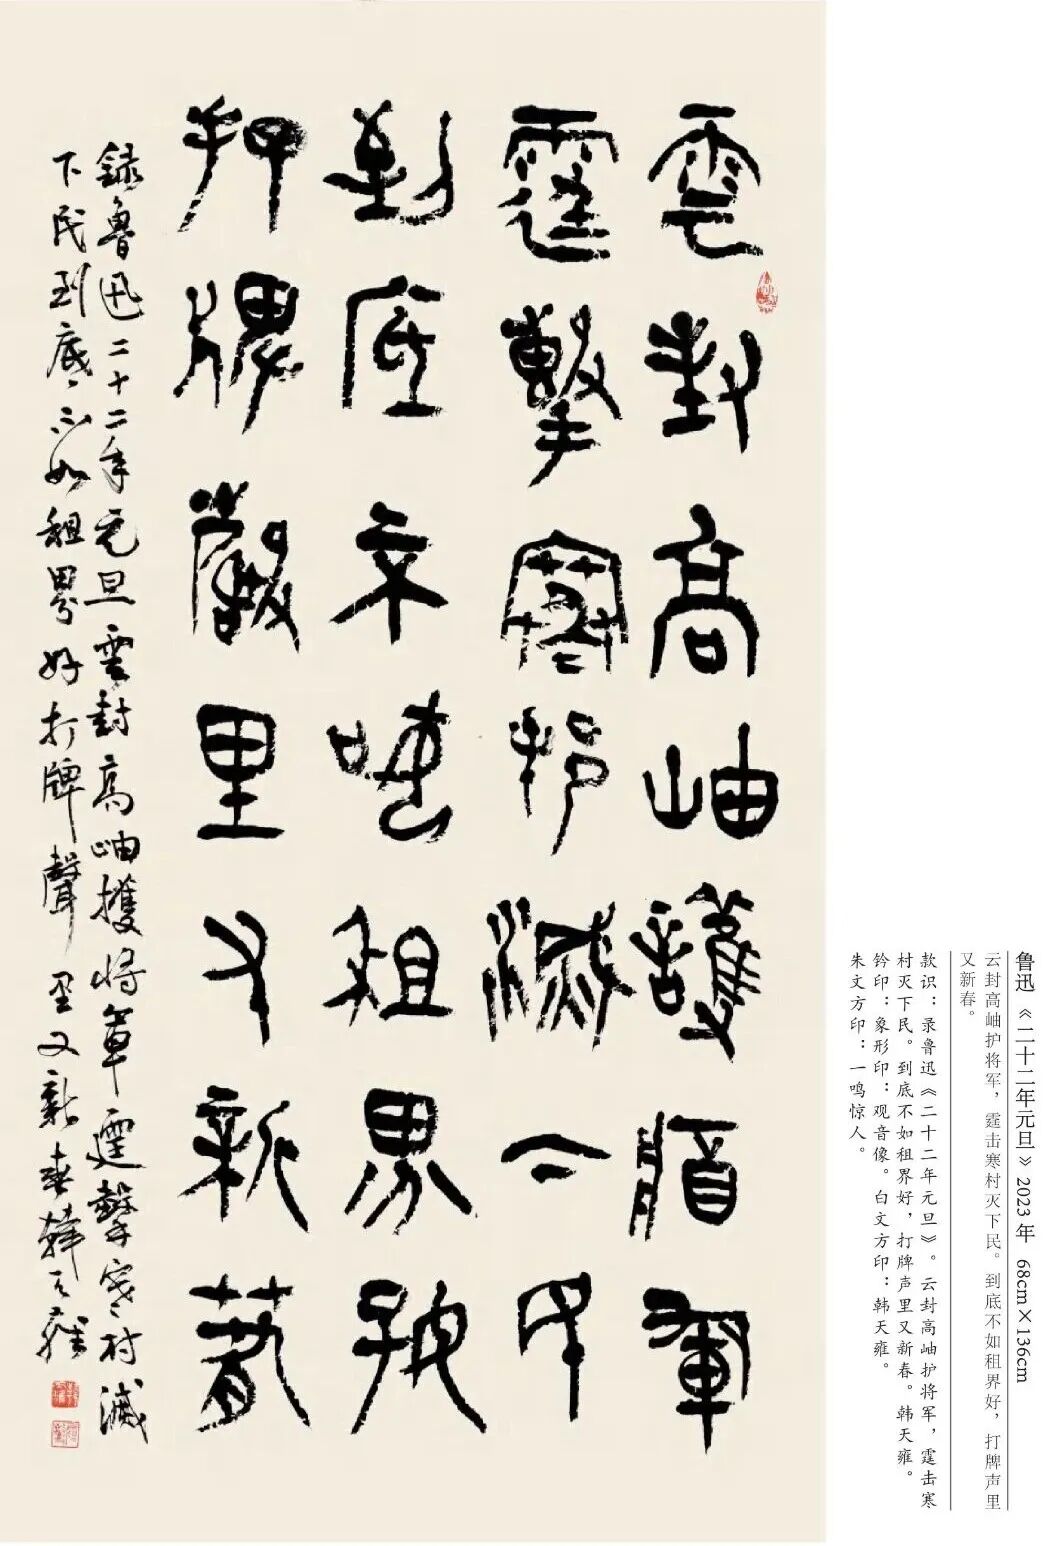 雲封高岫護䐂軍
霆擊寒邨滅下民
到底不如租界好
打牌聲里又新春
録魯迅二十二年元旦雲封高岫護將軍霆擊寒村滅
下民到底不如租界好打牌聲里又新春韓天雍
鲁迅《二十二年元旦》2023年 68cm×136cm
云封高岫护将军，霆击寒村灭下民。到底不如租界好，打牌声里
又新春。
款识：录鲁迅《二十二年元旦》。云封高岫护将军，霆击寒
村灭下民。到底不如租界好，打牌声里又新春。韩天雍。
钤印：象形印：观音像。白文方印：韩天雍。
朱文方印：一鸣惊人。